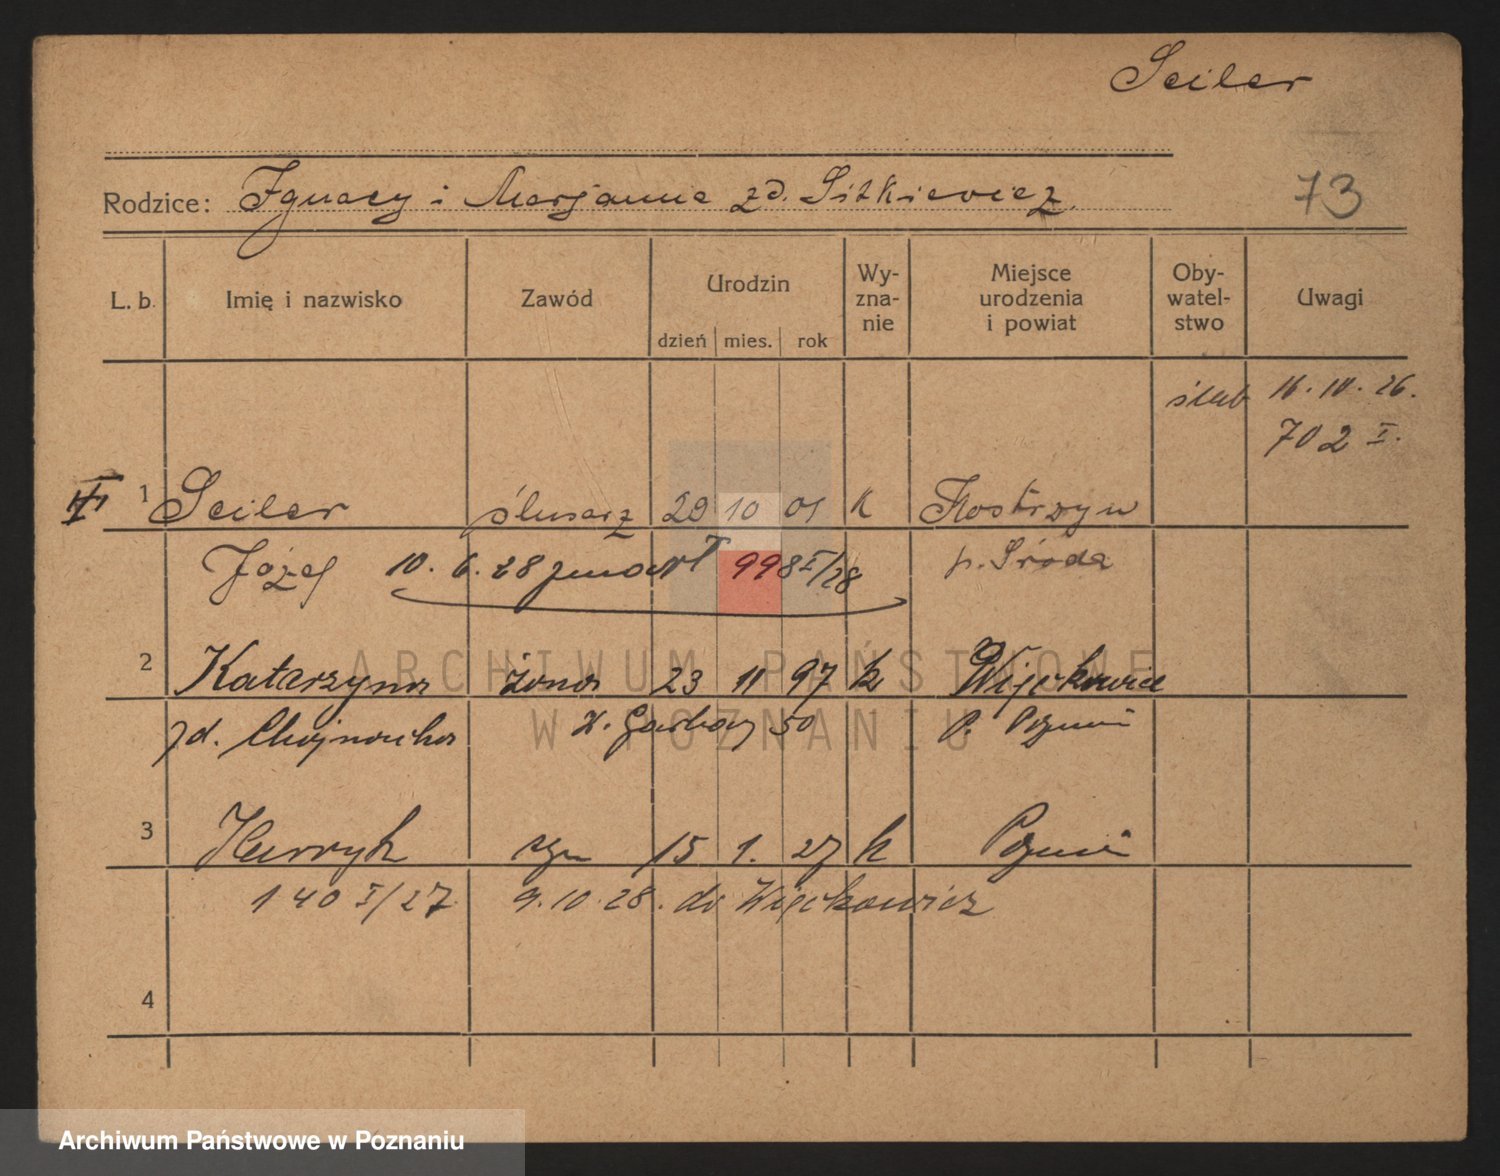 Seiler
Rodzice: Ignacy i Marjanna zd. Sitkiewicz.
73
L. b. Imię i nazwisko Zawód Urodzin Wy-zna-nie Miejsce urodzenia i powiat Oby-watel-stwo Uwagi
dzień mies. rok
ślub 16.10.26.
702 I.
1 Seiler ślusarz 29 10 01 k Kostrzyn
Józef 10.6.28 zmarł 998 I/28 p. Środa
2 Katarzyna żona 23 11 97 k Więckowice
zd. Chojnacka Garbary 50 p. Poznań
3 Henryk syn 15 1. 27 k Poznań
140 I/27 9.10.28. do Więckowic
4
ARCHIWUM PAŃSTWOWE
W POZNANIU
Archiwum Państwowe w Poznaniu